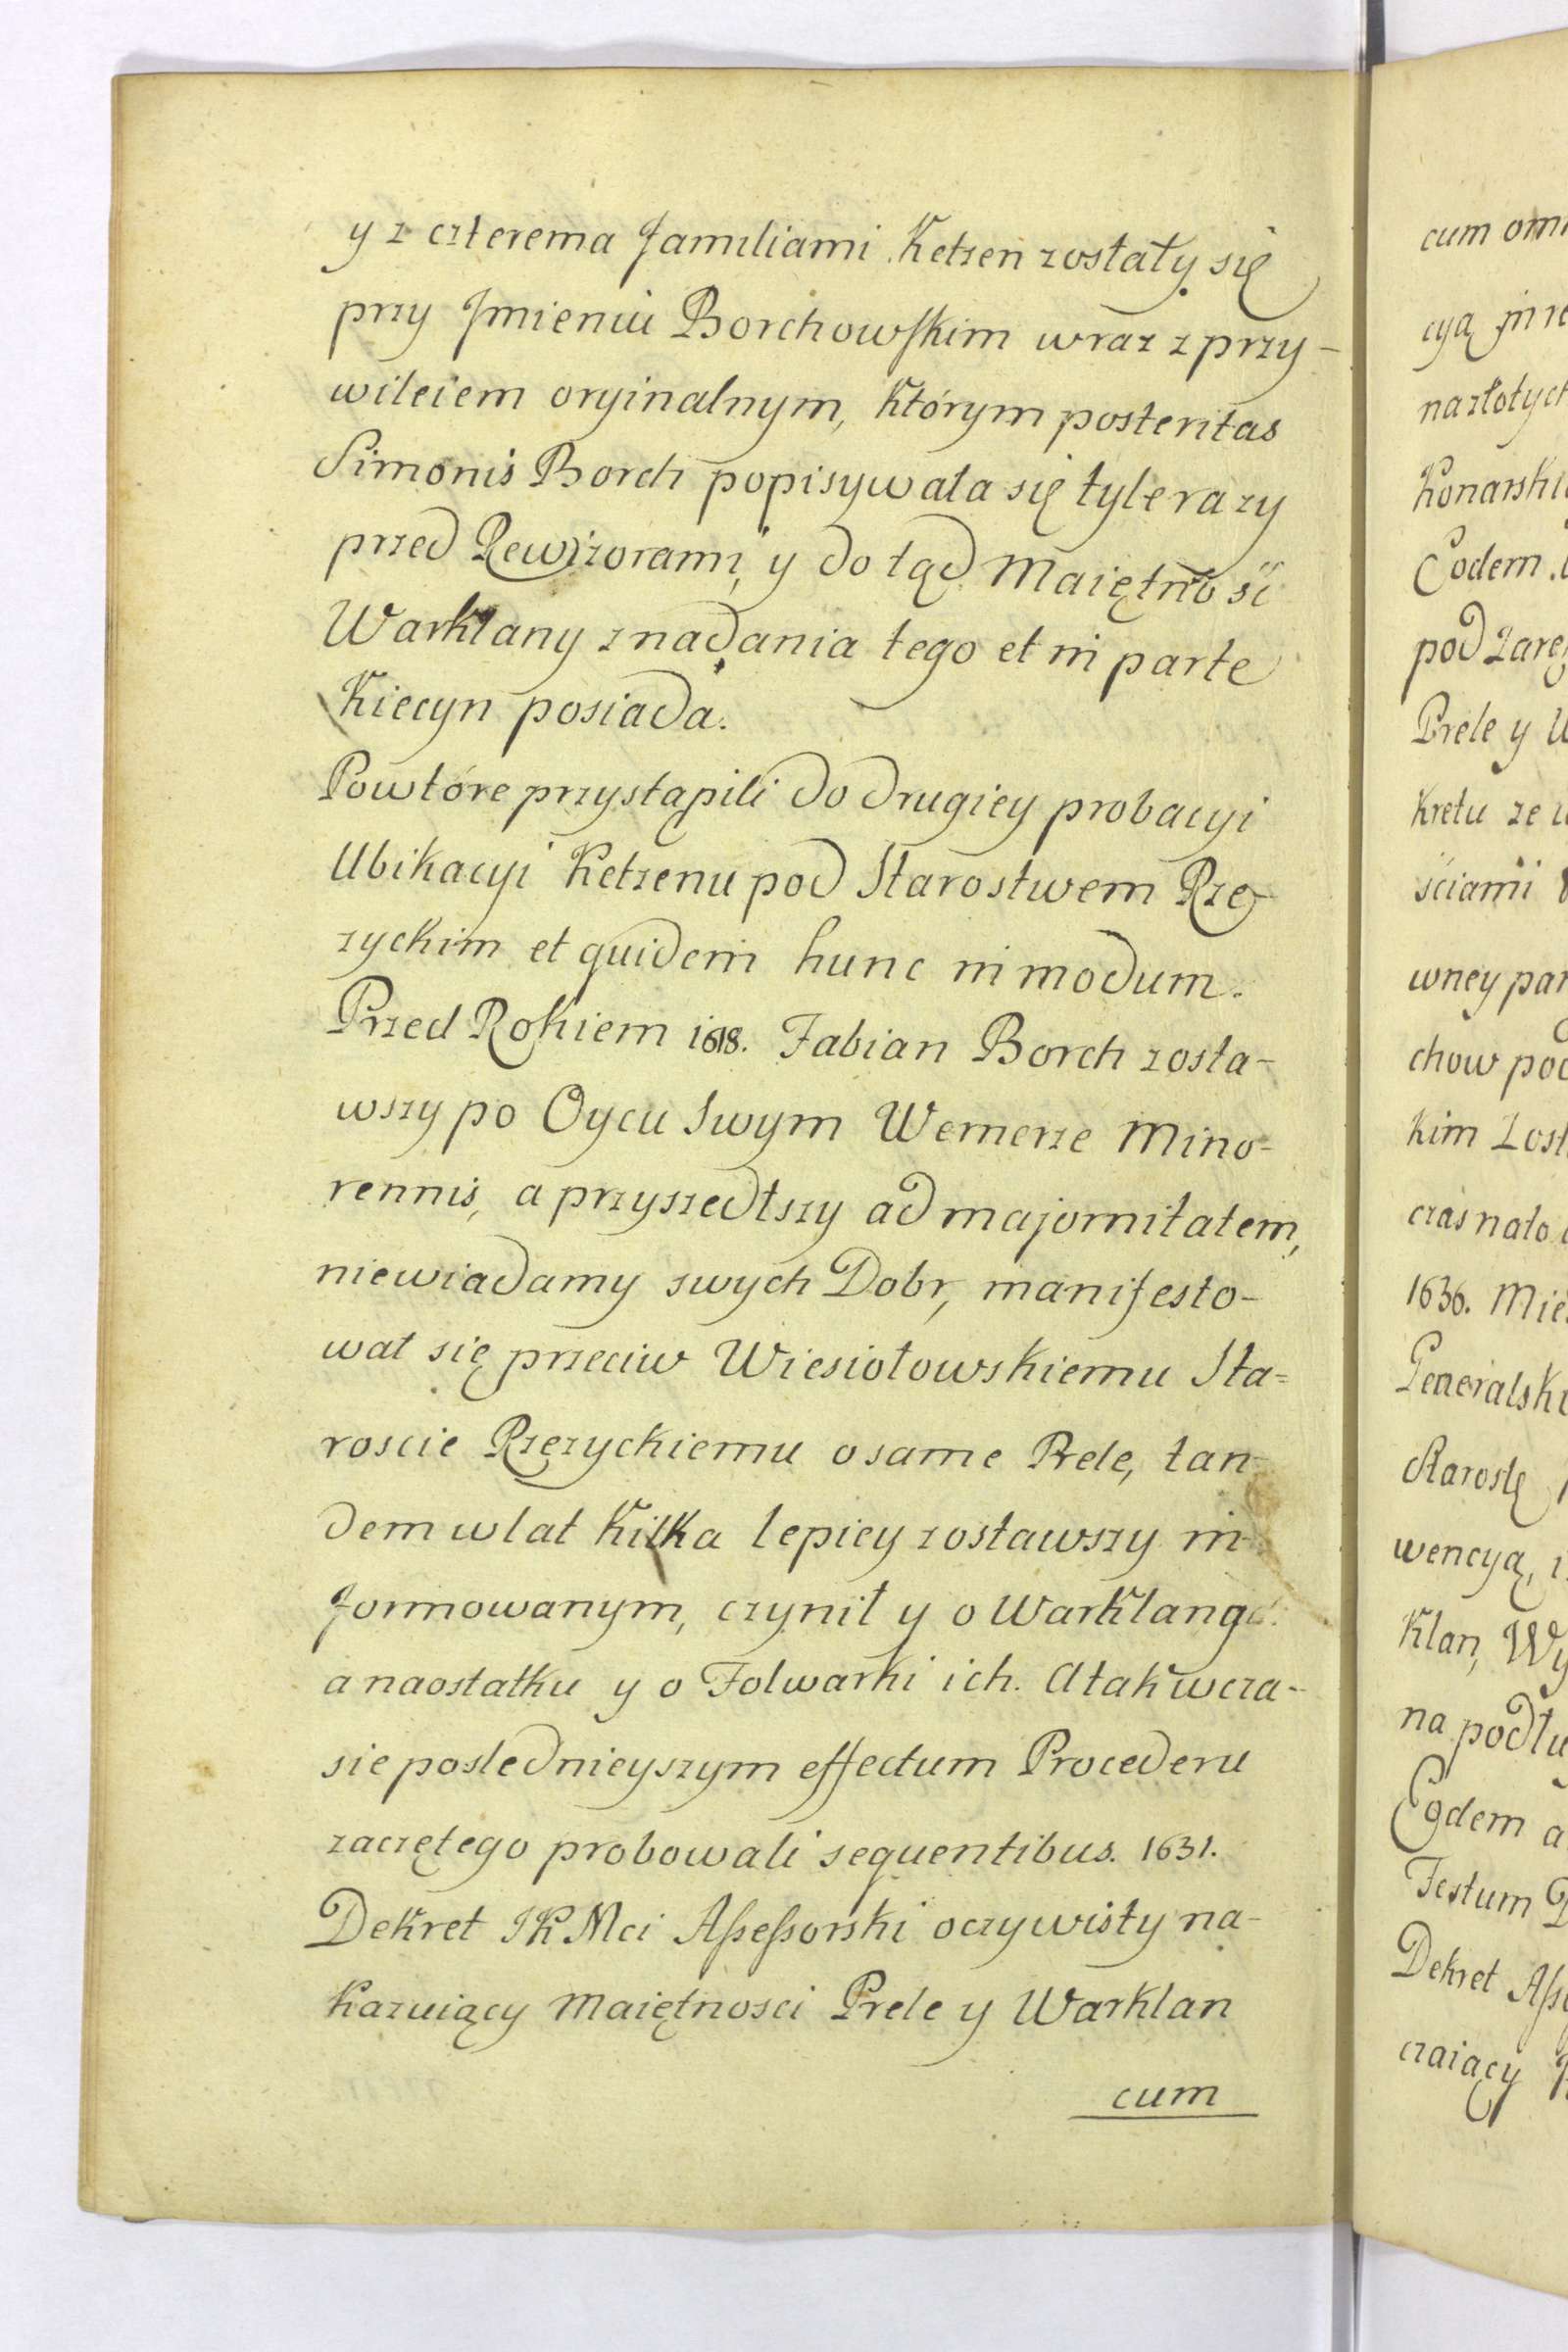 y z czterema Familiami Ketzen zostały się
przy Jmieniu Borchowskim wraz z przy-
wileiem oryinalnym, którym posteritas
Simonis Borch popisywała się tyle razy
przed Rewizorami, y do tąd Maiętność
Warklany z nadania tego et in parte
Kiecyn posiada.
Powtóre przystąpili do drugiey probacyi
Ubikacyi Ketzenu pod Starostwem Rze-
zyckim et quidem hunc in modum.
Przed Rokiem 1618. Fabian Borch zosta-
wszy po Oycu Swym Wernerze Mino-
rennis, a przyszedłszy ad majornitatem,
niewiadamy swych Dobr, manifesto-
wał się przeciw Wiesiołowskiemu Sta=
roscie Rzęzyckiemu o same Prele, tan-
dem w lat Kilka lepiey zostawszy in-
formowanym, czynił y o Warklang
a naostatku y o Folwarki ich. A tak w cza-
sie poslednieyszym effectum Procederu
zaczętego probowali sequentibus. 1631.
Dekret JK Mci Aßeßorski oczywisty na-
kazuiący Maiętnosci Prele y Warklan
cum
cum omn
cyą in re
na złotych
Konarski
Eodem
pod Zarę
Prele y W
kretu ze
ściami
wney par
chow pod
kim Zost
czas nato
1636. Mie
Generalski
Starostę
wencyą,
Klan, Wy
na podłu
Eodem a
Festum
Dekret Aße
czaiący